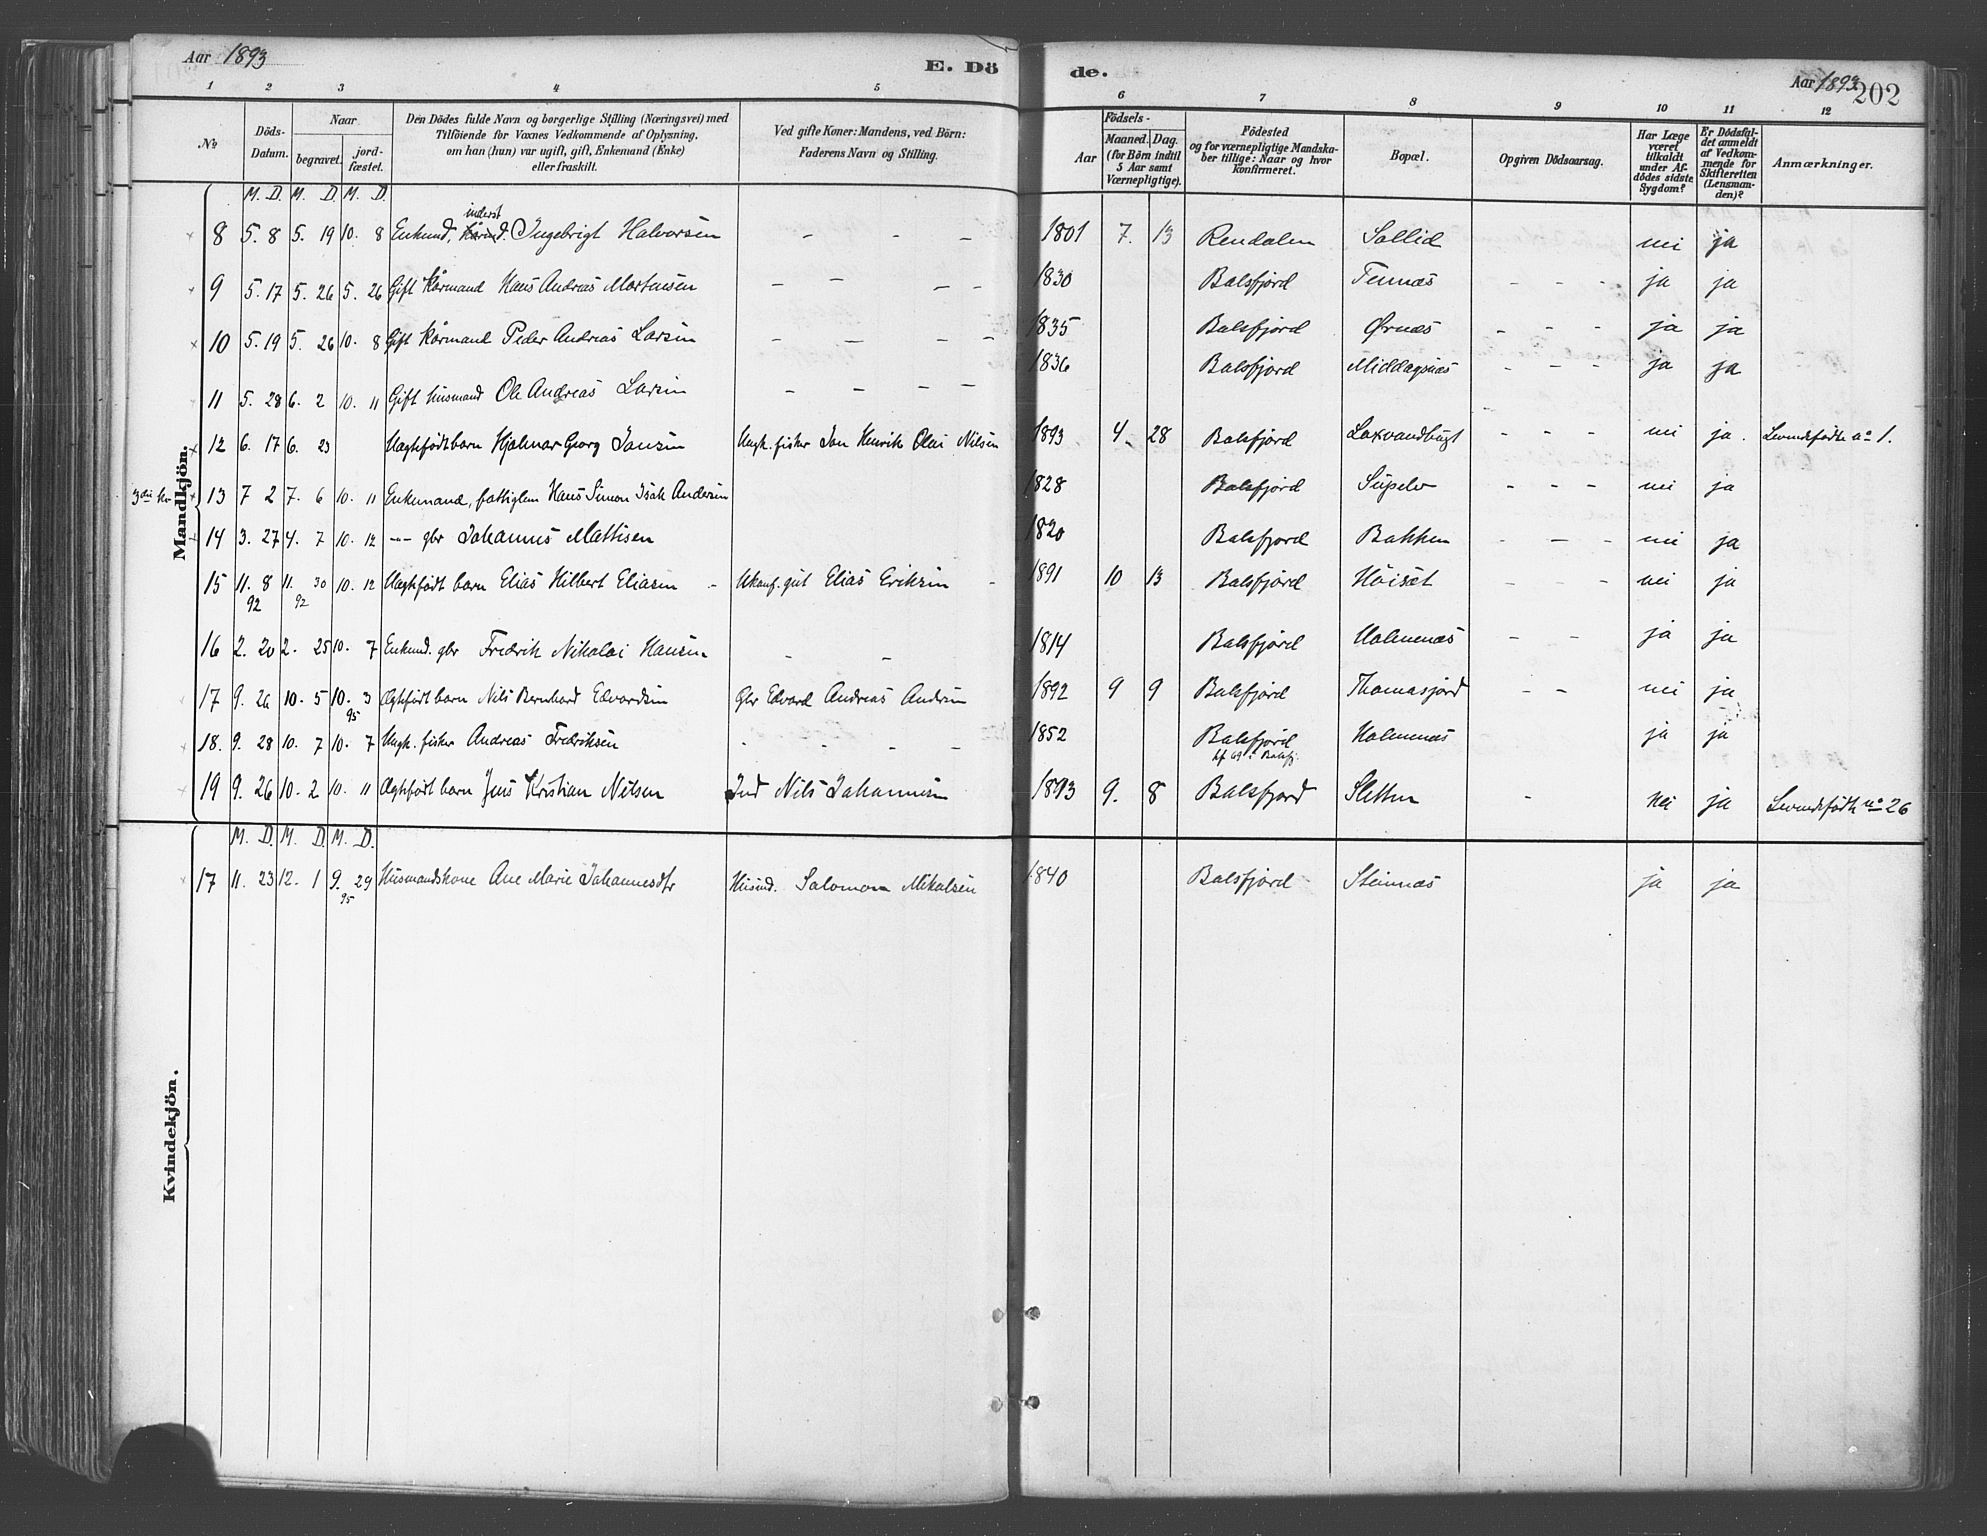 Aar 1893
E. Dö
de.
Aar 1893.
202
1 2 3 4 5 6 7 8 9 10 11 12
No
Döds-
Datum.
Naar
begravet.
jord-
fæstet.
Den Dödes fulde Navn og borgerlige Stilling (Næringsvei) med
Tilföiende for Voxnes Vedkommende af Oplysning,
om han (hun) var ugift, gift, Enkemand (Enke)
eller fraskilt.
Ved gifte Koner: Mandens, ved Börn:
Faderens Navn og Stilling.
Födsels-
Aar
Maaned. Dag.
(for Börn indtil
5 Aar samt
Værnepligtige).
Födested
og for værnepligtige Mandska-
ber tillige: Naar og hvor
konfirmeret.
Bopæl.
Opgiven Dödsaarsag.
Har Læge
været
tilkaldt
under Af-
dödes sidste
Sygdom?
Er Dödsfal-
det anmeldt
af Vedkom-
mende for
Skifteretten
(Lensman-
den)?
Anmærkninger.
Mandkjön.
M. D. M. D. M. D.
inderst
8 5. 8 5. 19 10. 8 Enkmd, Ingebrigt Halvorsen - - - 1801 7. 13 Rendalen Sollid nei ja
9 5. 17 5. 26 5. 26 Gift kårmand Hans Andreas Mortensen - - - - 1830 Balsfjord Tennæs - - - ja ja
10 5. 19 5. 26 10. 8 Gift kårmand Peder Andreas Larsen - - - - 1835 Balsfjord Ørnæs - - - ja ja
11 5. 28 6. 2 10. 11 Gift husmand Ole Andreas Larsen - - - - 1836 Balsfjord Middagsnæs - - - ja ja
12 6. 17 6. 23 Uægtefødt barn Hjalmar Georg Jansen Ungk. fisker Jan Henrik Olai Nilsen 1893 4. 28 Balsfjord Laxvandbugt - - - nei ja. Levendefødte no 1.
13 7 2 7. 6 10. 11 Enkemand, fattiglem Hans Simon Isak Andersen 1828 Balsfjord - - - nei ja
14 3. 27 4. 7 10. 12 -"- gbr Johannes Mattisen 1820 Balsfjord Bakken - - - nei ja
15 11. 8 11. 30 10. 12 Uægtefødt barn Elias Hilbert Eliasen - Ukonf. gut Elias Eriksen - 1891 10 13 Balsfjord Høiset - - - nei ja
92 92
16 2. 20 2. 25 10. 7 Enkmd. gbr Fredrik Nikolai Hansen - - 1814 Balsfjord Holmenæs - - ja ja
17 9. 26 10. 5 10. 3 Ægtefødt barn Nils Bernhard Edvardsen Gbr Edvard Andreas Andersen 1892 9 9 Balsfjord Thomasjord - - nei ja
95
18. 9. 28 10. 7 10. 7 Ungk. fisker Andreas Fredriksen - - - - 1852 Balsfjord Holmenæs ja ja
kf 69 i Balsfj.
19 9. 26 10. 2 10. 11 Ægtefødt barn Jens Kristian Nilsen Ind Nils Johannesen 1893 9. 8 Balsfjord Sletten - nei ja Levendefødte no 26
Kvindekjön.
M. D. M. D. M. D.
17 11. 23 12. 1 9. 29 Husmandskone Ane Marie Johannesdtr Husmd. Salomon Mikalsen 1840 Balsfjord Steinnæs ja ja
95